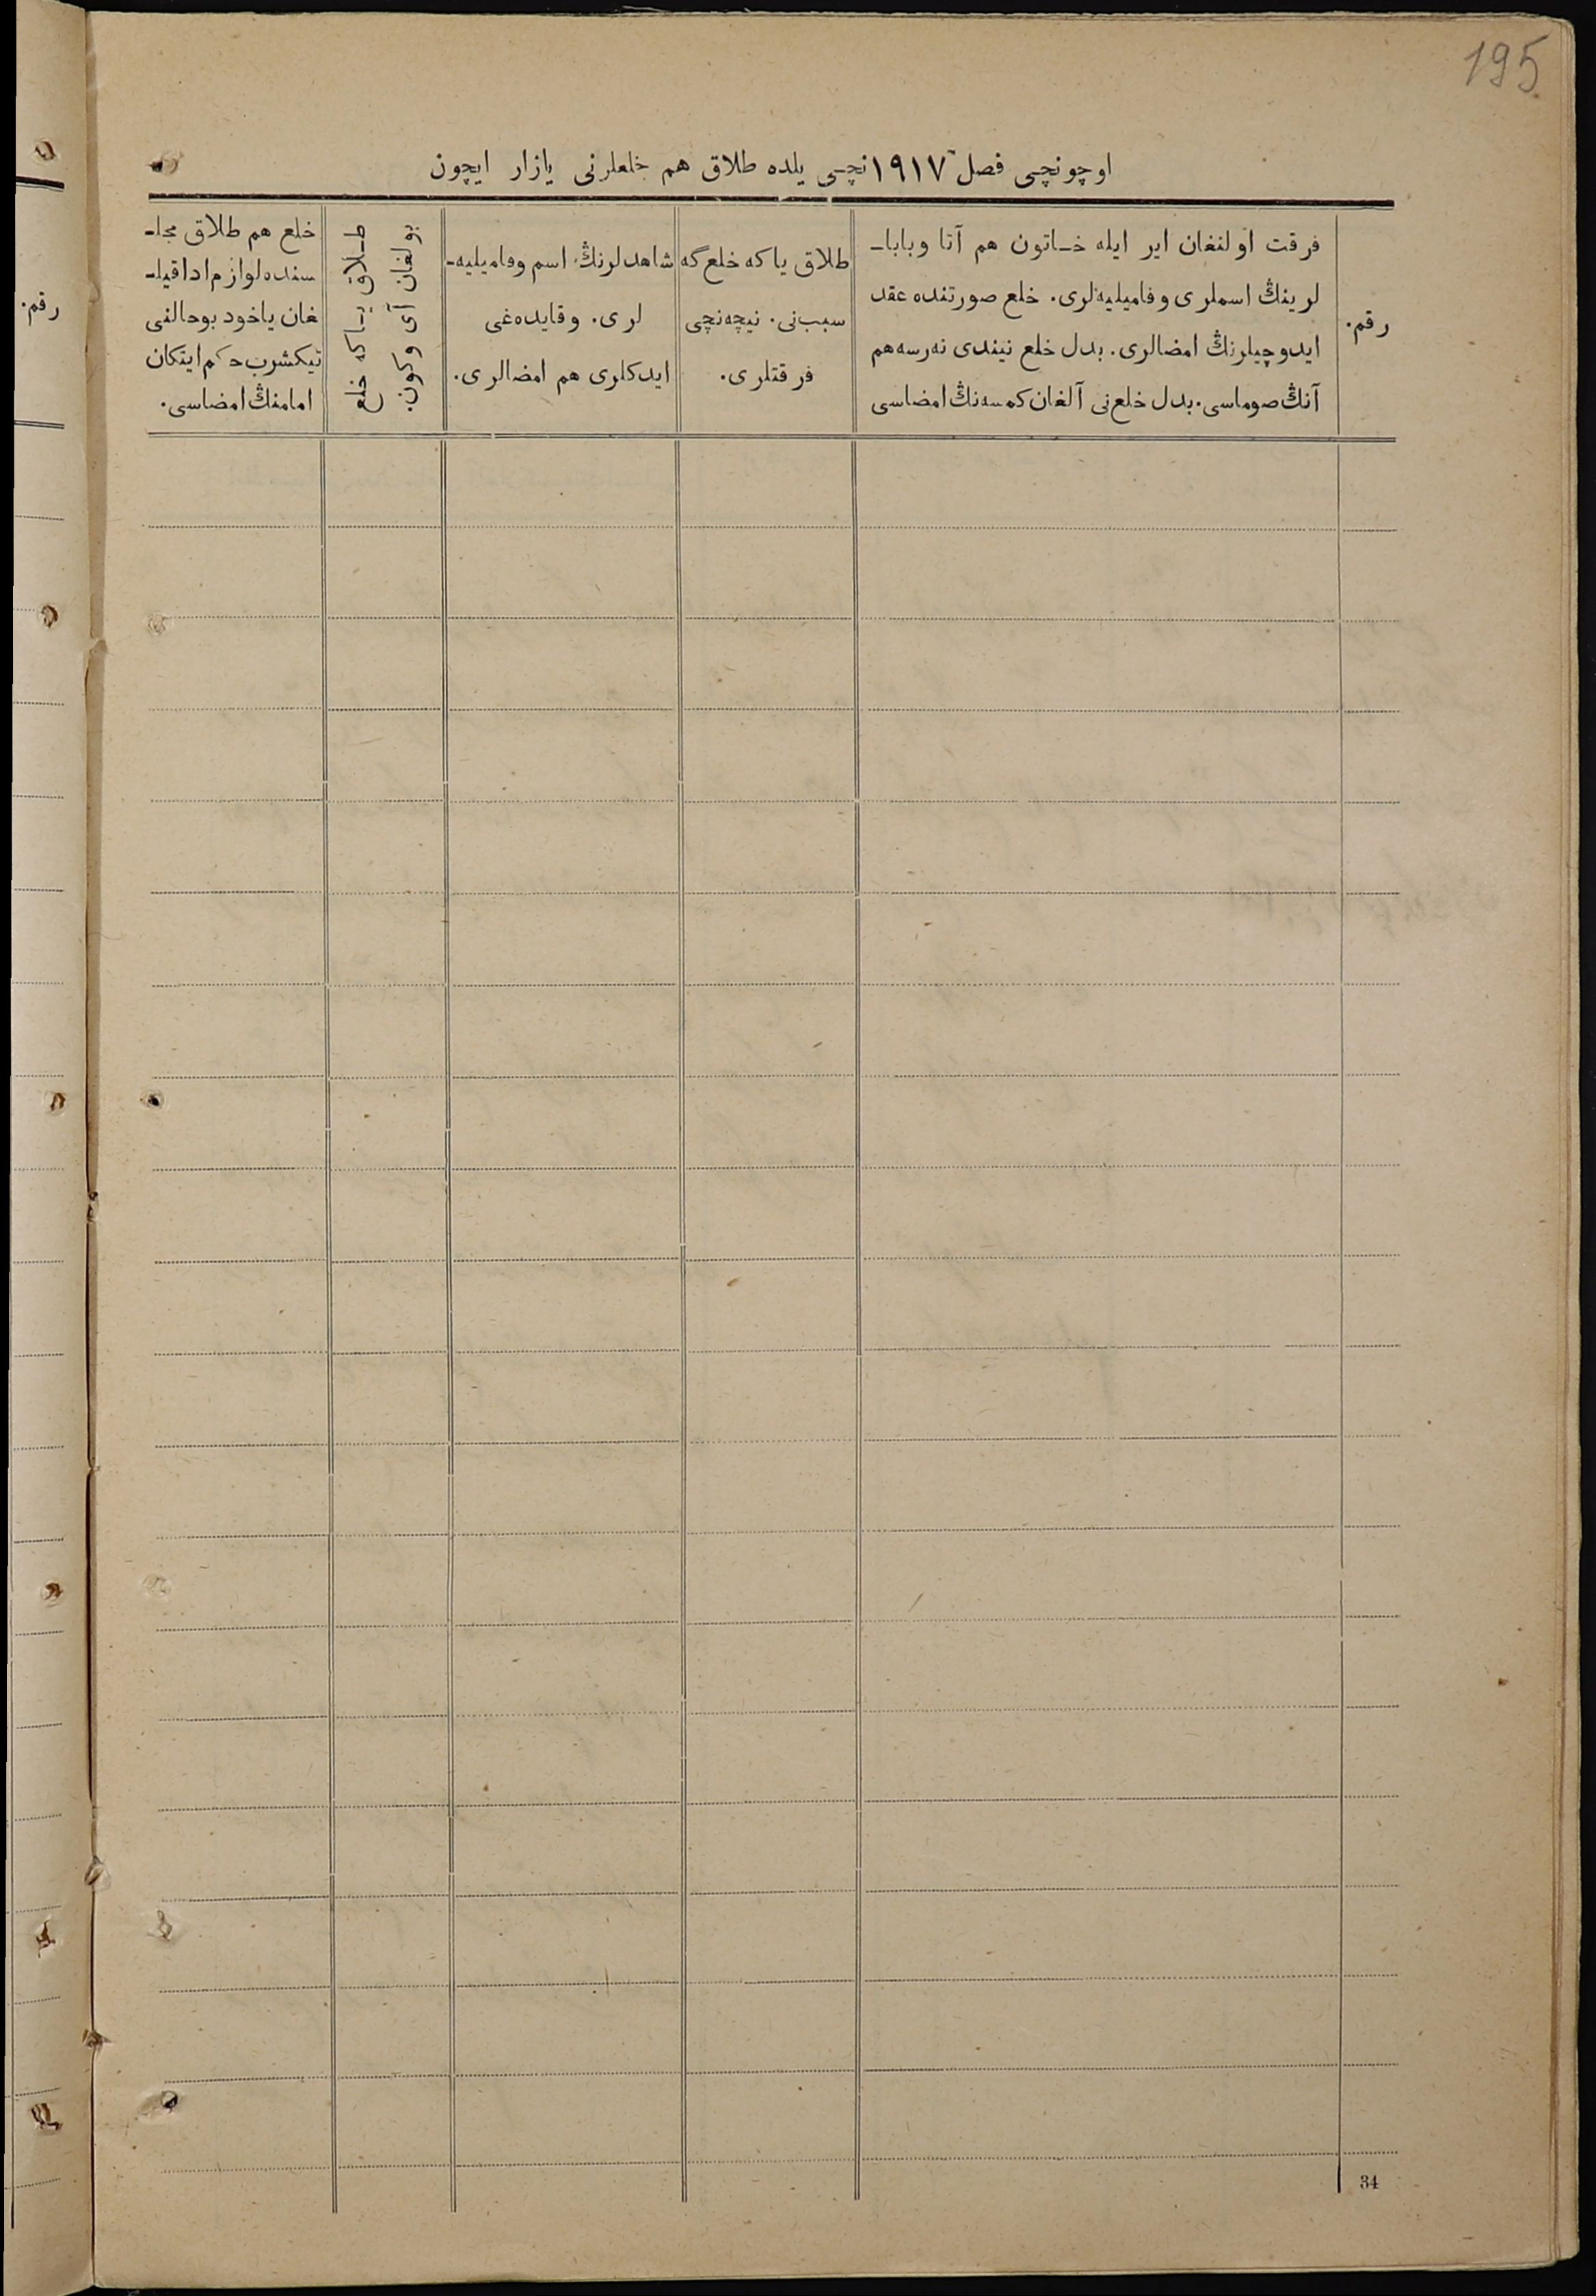 195.
اوچونچی فصل ۱۹۱۷نچی یلده طلاق هم خلعلرنی یازار ایچون
رقم.
فرقت اولنغان ایر ایله خـاتون هم آتا وباباـ
لرینڭ اسملری وفامیلیه‌لری. خلع صورتنده عقد
ایدوچیلرنڭ امضالری. بدل خلع نیندی نه‌رسه‌هم
آنڭ صوماسی. بدل خلع‌نی آلغان کمسه‌نڭ امضاسی
طلاق یاکه خلع‌گه
سبب‌نی. نیچه‌نچی
فرقتلری.
شاهدلرنڭ اسم وفامیلیه‌ـ
لری. وقایده‌غی
ایدکلری هم امضالری.
طـلاق یـاکه خلع
بولغان آی وکون.
خلع هم طلاق مجاـ
سنده لوازم اداقیلـ
غان یاخود بوحالنی
تیکشرب حکم ایتکان
امامنڭ امضاسی.
رقم.
34